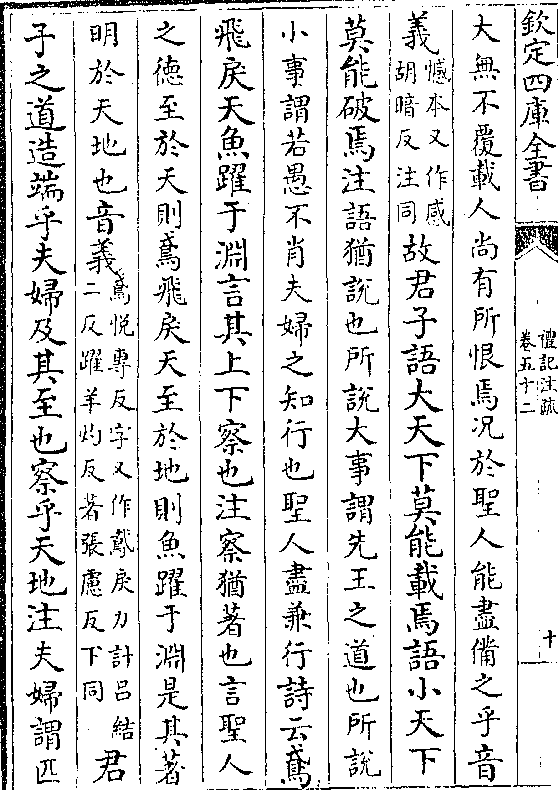 欽定四庫全書
禮記注疏
卷五十二
十
大無不覆載人尚有所恨焉况於聖人能盡備之乎音
義憾本又作感胡暗反注同故君子語大天下莫能載焉語小天下
莫能破焉注語猶說也所說大事謂先王之道也所說
小事謂若愚不肖夫婦之知行也聖人盡兼行詩云鳶
飛戾天魚躍于淵言其上下察也注察猶著也言聖人
之德至於天則鳶飛戾天至於地則魚躍于淵是其著
明於天地也音義鳶悅專反字又作䳒戾力計吕結二反躍羊灼反著張慮反下同君
子之道造端乎夫婦及其至也察乎天地注夫婦謂匹